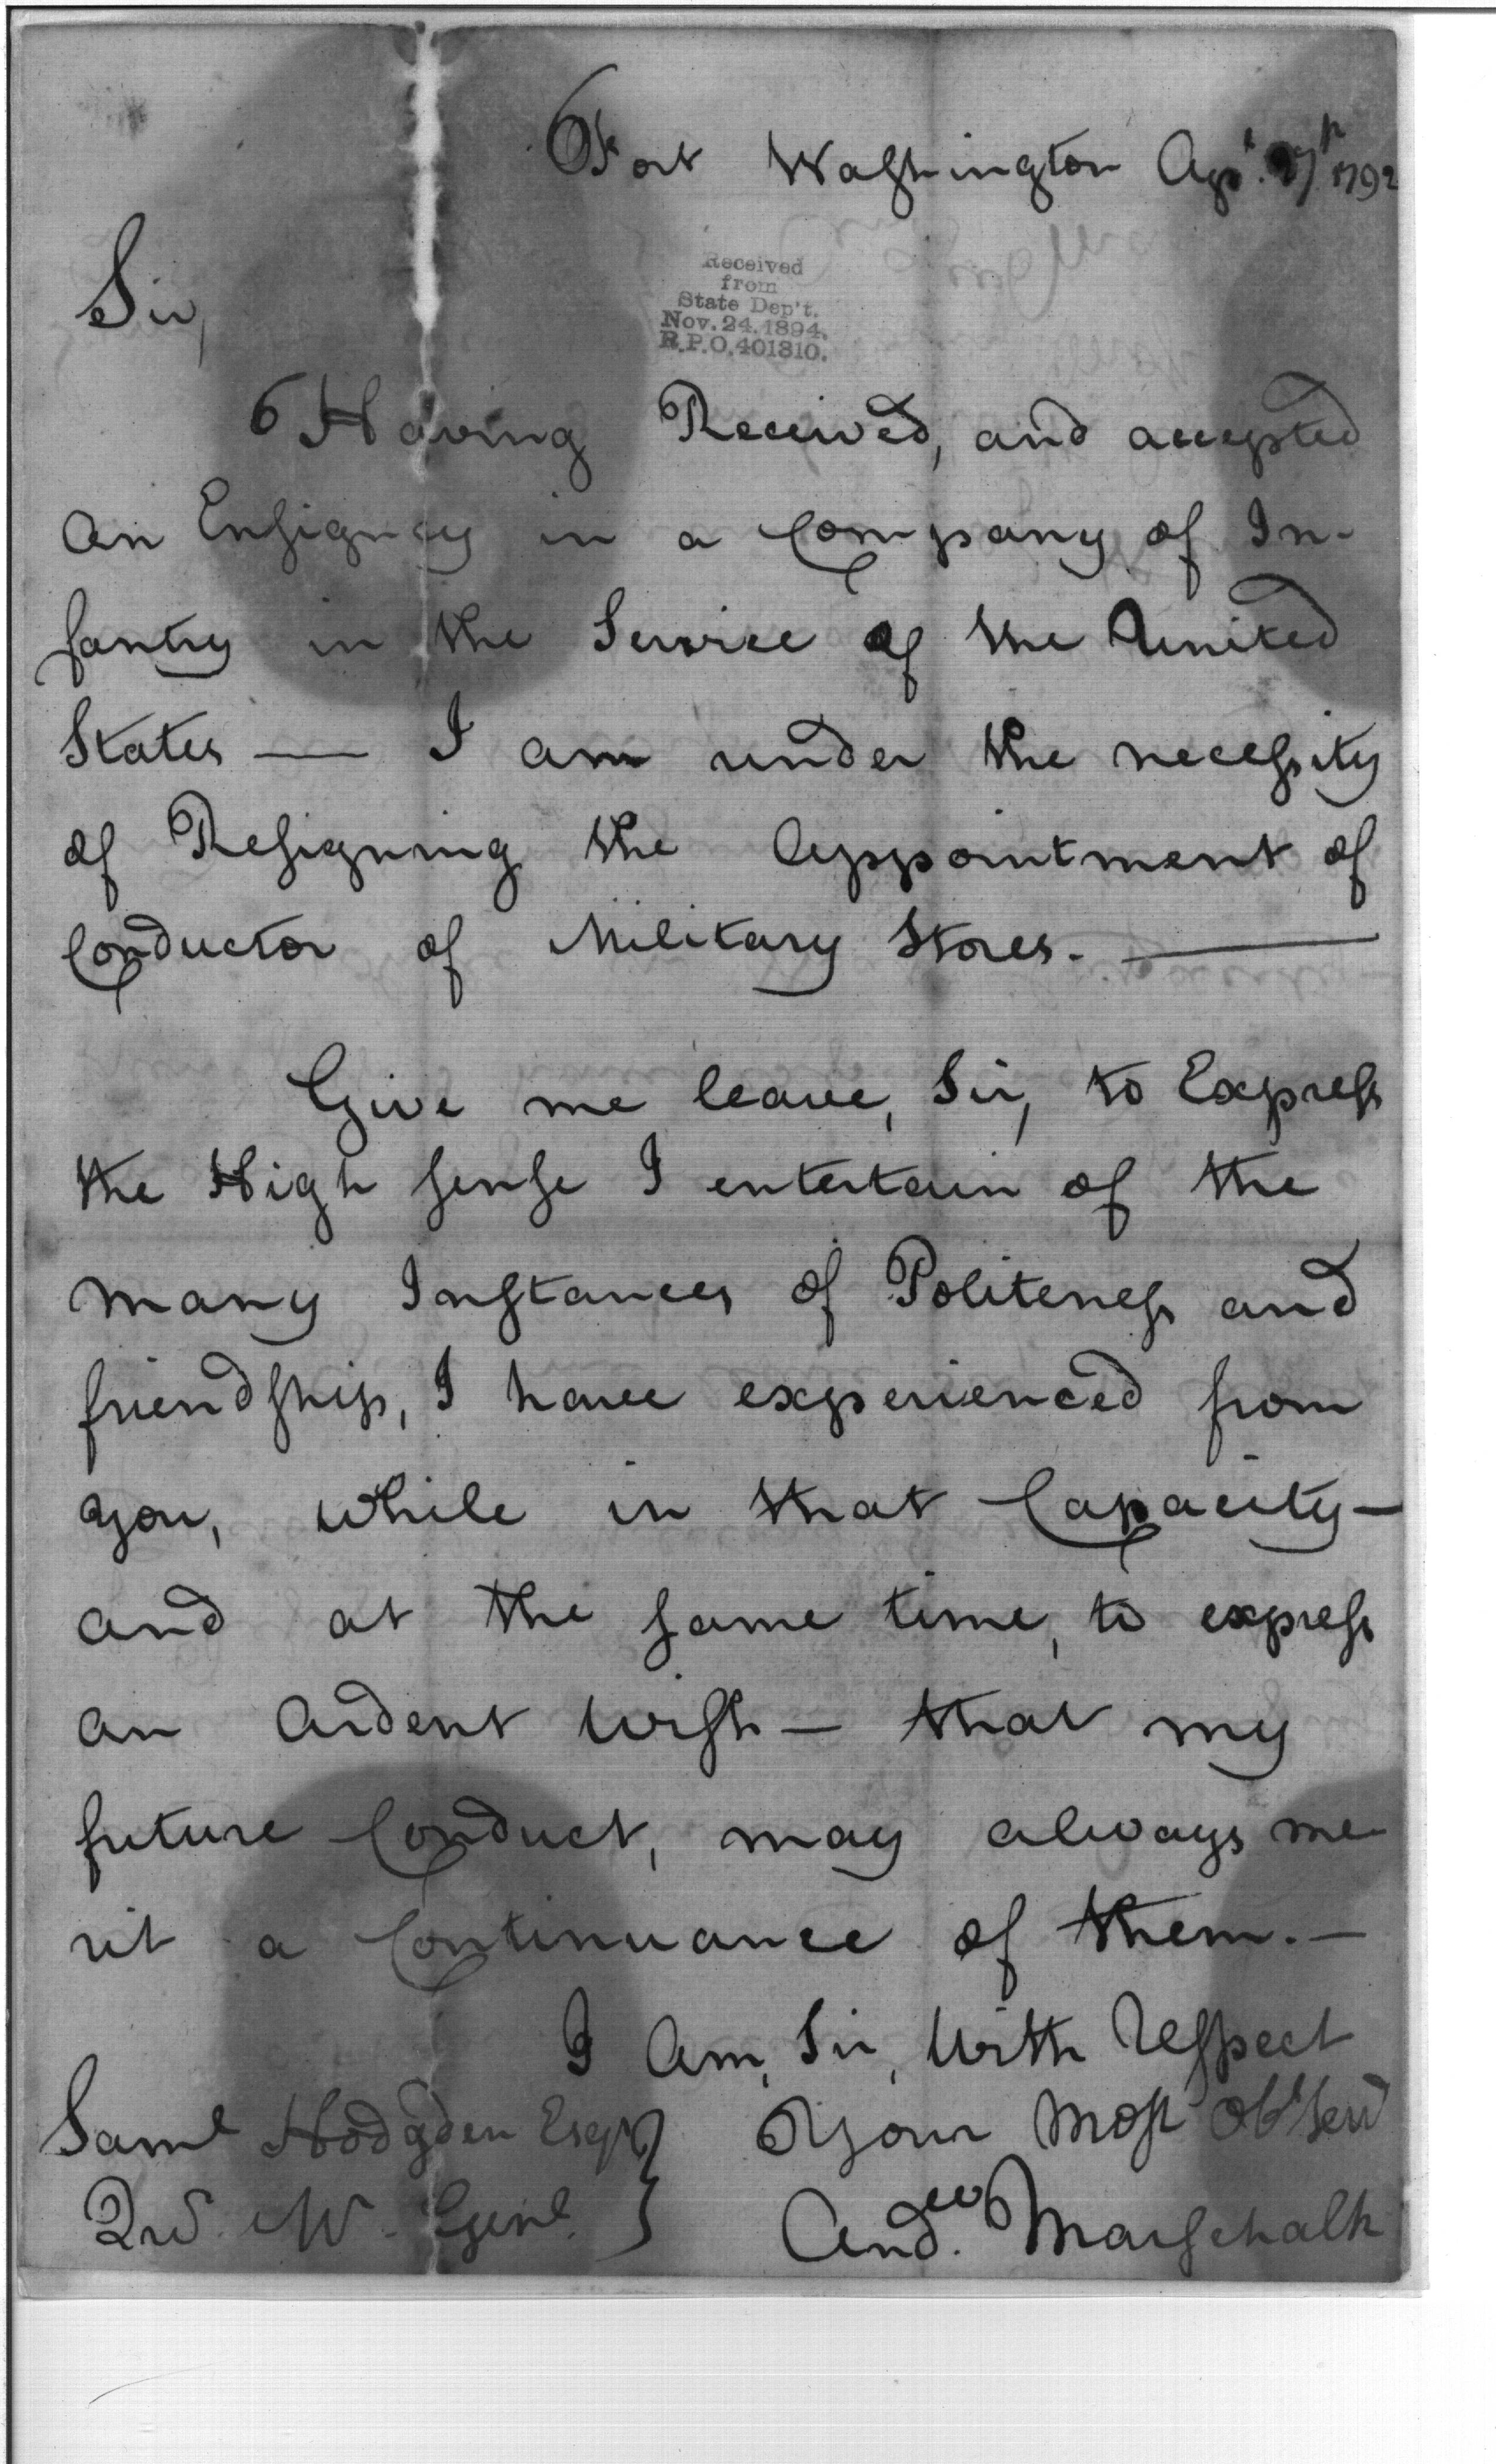 Fort Washington Apr. 27th 1792
Received
from
State Dep't.
Nov. 24. 1894.
R.P.O. 401310.
Sir,
Having Received, and accepted
an Ensigncy in a Company of In-
fantry in the Service of the United
States — I am under the necessity
of Resigning the Appointment of
Conductor of Military Stores. —
Give me leave, Sir, to Express
the High sense I entertain of the
many Instances of Politeness and
friendship, I have experienced from
you, while in that Capacity —
and at the same time, to express
an Ardent Wish — that my
future Conduct, may always me
rit a Continuance of them. —
I Am, Sir, With Respect
Your Most Obt Servt
Andew. Marschalk
Saml Hodgden Esqr }
Qr. M. Genl. }